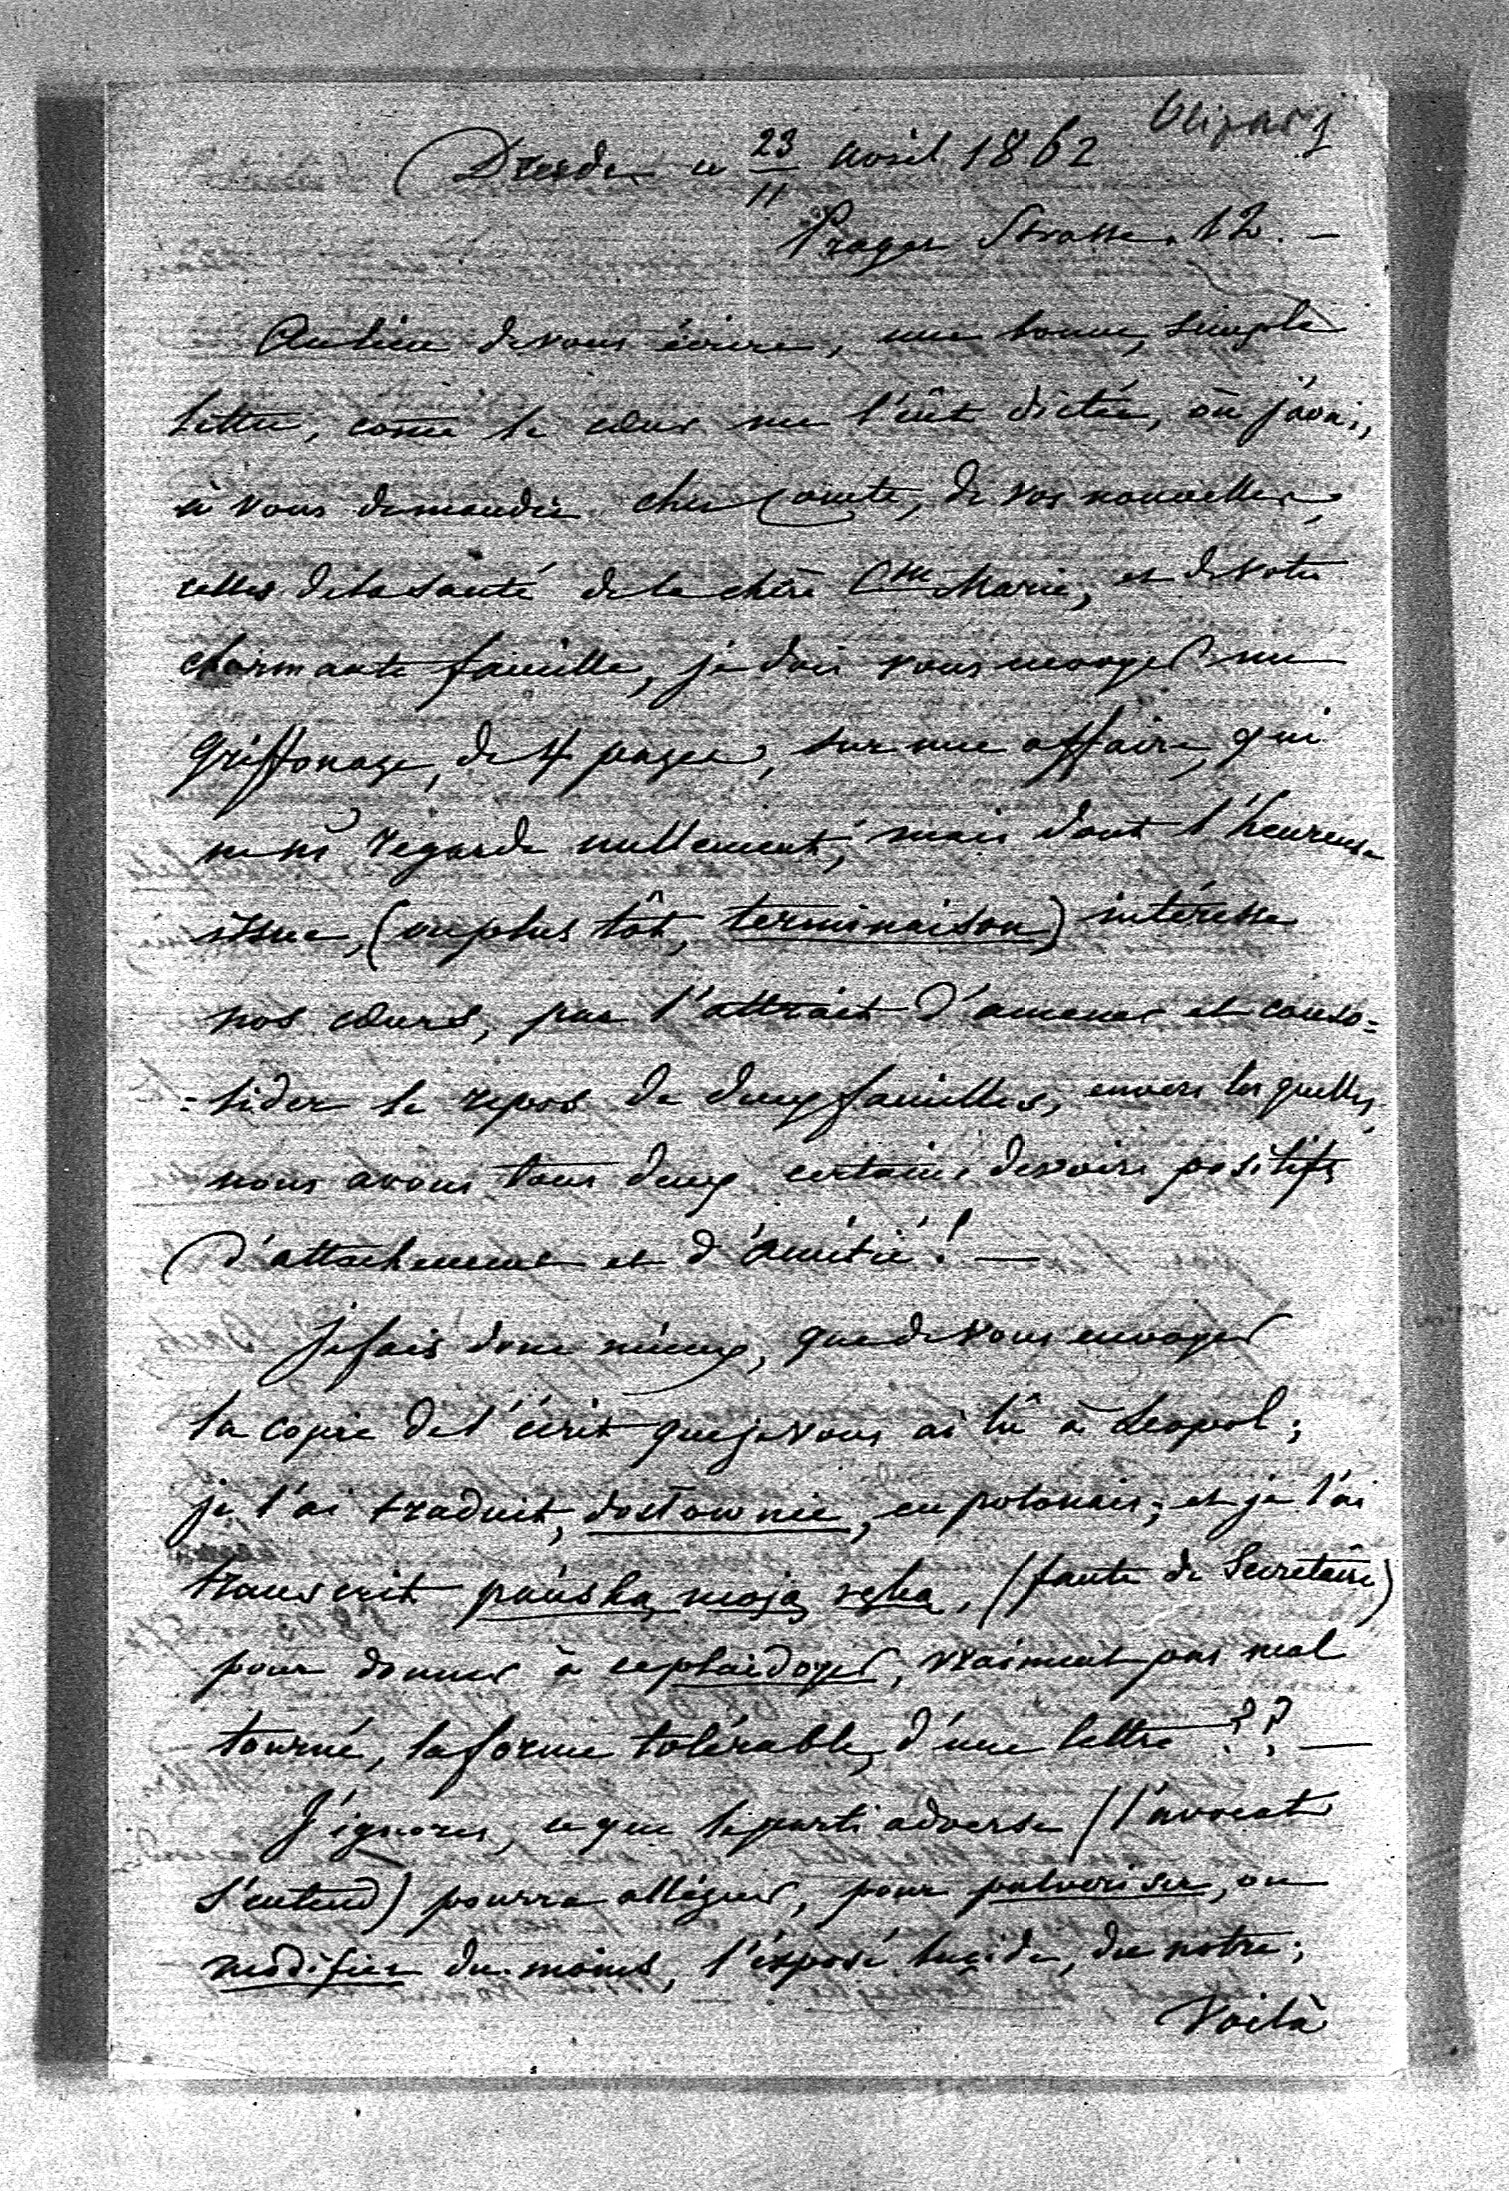 Olizar
Dresde ce 23/11 Avril 1862
Prager Strasse. 12. —
Au lieu de vous écrire, une bonne, simple
lettre, come le cœur me l'eût dictée, où j'avais,
à vous demander cher Comte, de vos nouvelles,
celles de la santé de la chère Csse Marie, et de votre
charmante famille, je dois vous envoyer un
griffonage, de 4 pages, sur une affaire, qui
ne me régarde nullement; mais dont l'heureuse
issue, (ou plus tôt, terminaison) intéresse
nos cœurs, par l'attrait d'amener et conso=
=lider le repos de deux familles, envers les quelles,
nous avons tous deux certains devoirs positifs
d'attachement et d'amitié! —
Je fais donc mieux, que de vous envoyer
la copie de l'écrit que je vous ai lû à Leopol;
je l'ai traduit, dosłownie, en polonais; et je l'ai
transcrit pańską moją ręką, (faute de Secretaire)
pour donner à ce plaidoyer, vraiment pas mal
tourné, la forme tolérable, d'une lettre?? —
J'ignore, ce que le parti adverse (l'avocat
s'entend) pourra alléguer, pour pulveriser, ou
modifier du moins, l'exposé lucide, du notre;
Voilà